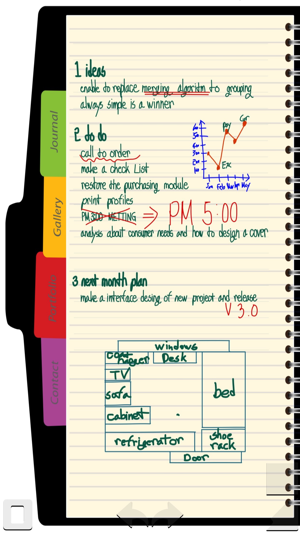 1 ideas
enable to replace merging algoritm to grouping
always simple is a winner
2 to do
call to order
make a check List
restore the purchasing module
print profiles
PM 3:00 MEETING ⇒ PM 5:00
analysis about consumer needs and how to design a cover
Car
Pay
Exc
Jan Feb Mar Apr May
3 next month plan
make a interface desing of new project and release
V 3.0
Windows
coat hanger
Desk
TV
sofa
bed
cabinet
refrigerator
shoe rack
Door
Journal
Gallery
Portfolio
Contact